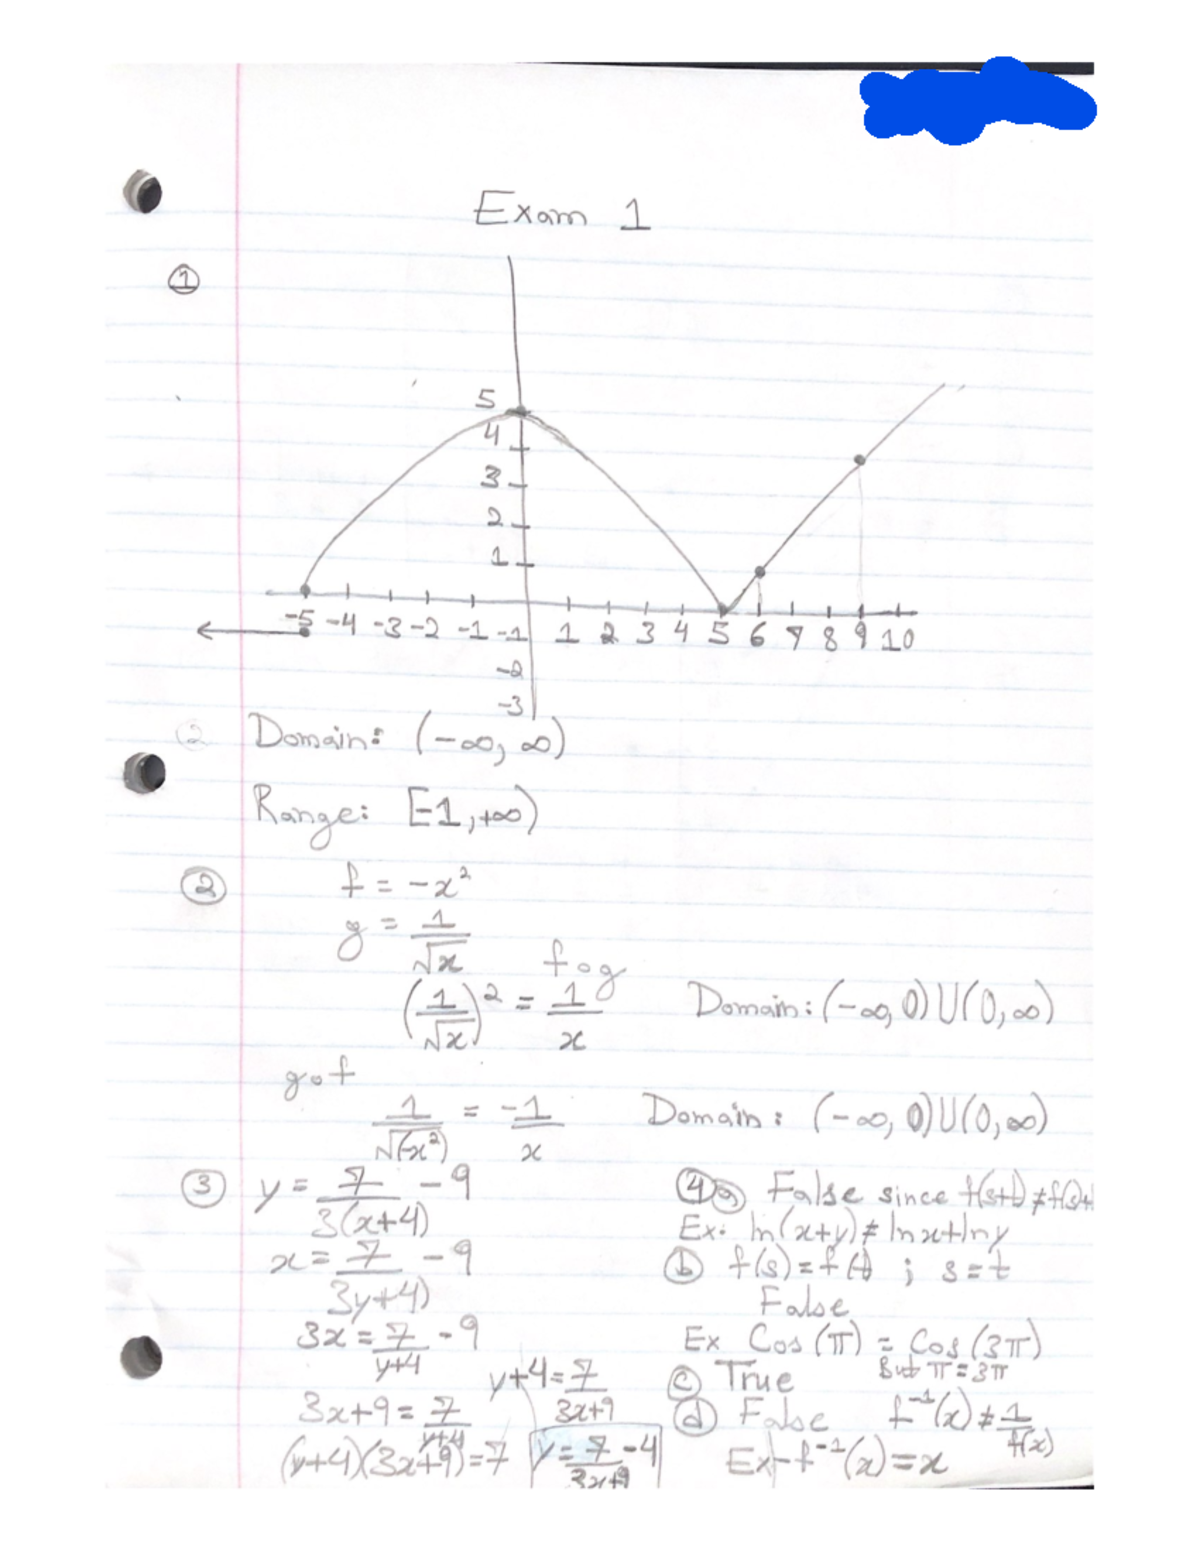 Exam 1
①
5
4
3
2
1
-5 -4 -3 -2 -1 -1 1 2 3 4 5 6 7 8 9 10
-2
-3
2 Domain: (-∞, ∞)
Range: [-1, +∞)
② f = -x²
g = 1/√x
f∘g
(1/√x)² = 1/x Domain: (-∞, 0) U (0, ∞)
g∘f
1/√(-x²) = -1/x Domain: (-∞, 0) U (0, ∞)
③ y = 7/3(x+4) - 9
x = 7/3y+4) - 9
3x = 7/y+4 - 9
3x+9 = 7/y+4
(y+4)(3x+9) = 7
y+4 = 7/3x+9
y = 7/3x+9 - 4
④ⓐ False since f(s+t) ≠ f(s)+
Ex. ln(x+y) ≠ lnx+lny
ⓑ f(s) = f(t) ; s = t
False
Ex Cos(π) = Cos(3π)
But π = 3π
ⓒ True
ⓓ False f⁻¹(x) ≠ 1/f(x)
Ex f⁻¹(x) = x